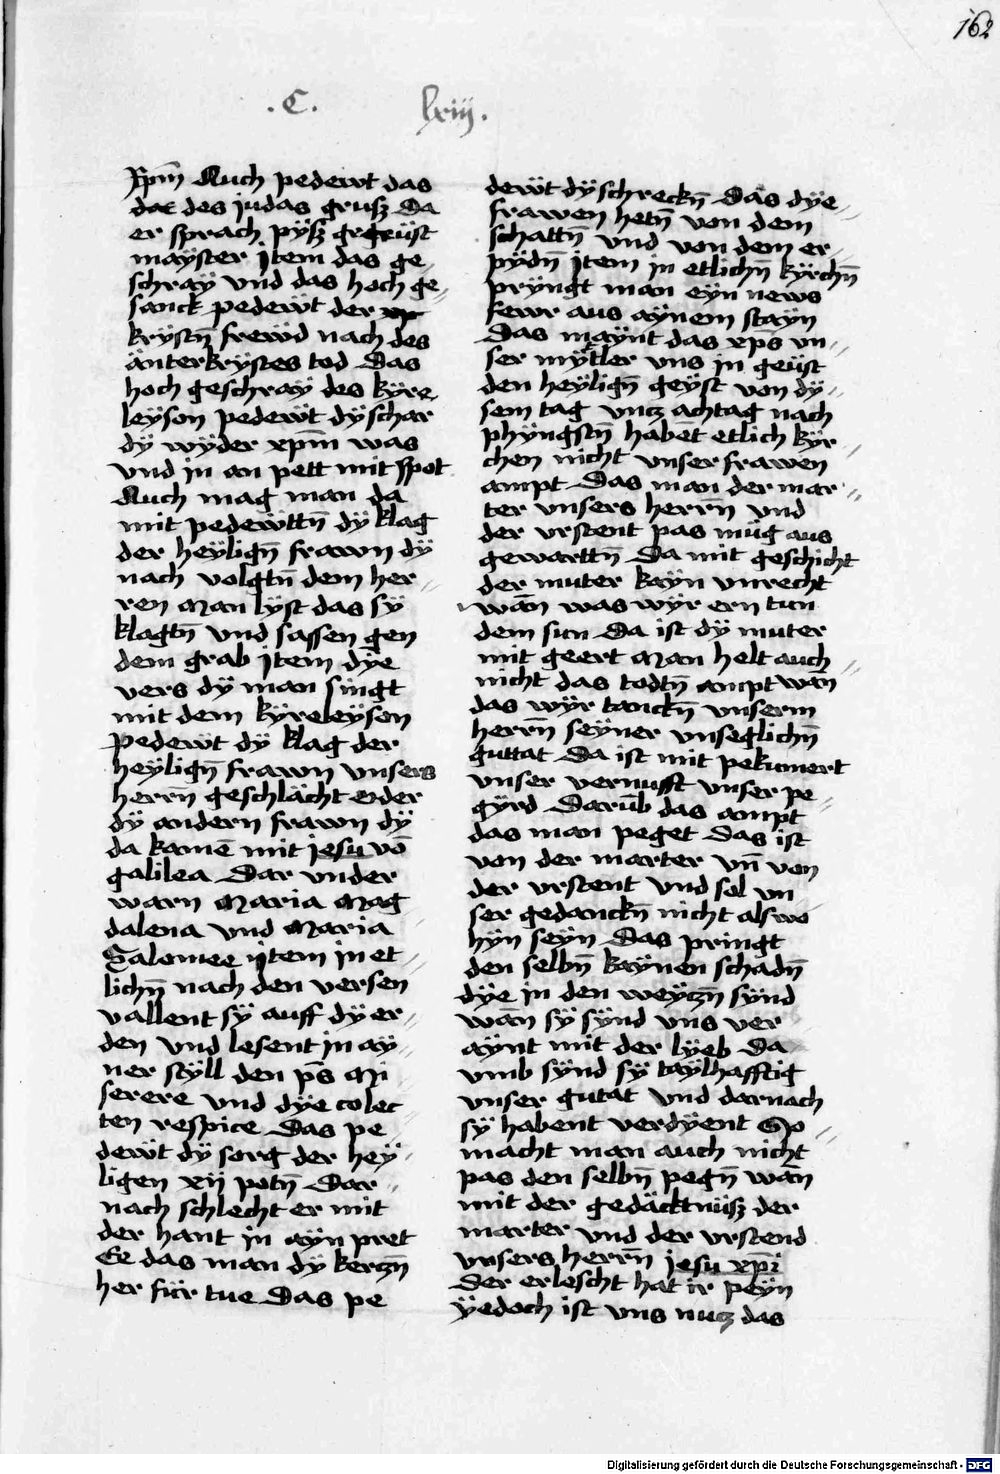 162
.C. lxiij.
xp̄m Auch pedewt das
das des judas gruß Da
er sprach pÿß gegrüst
maÿster jtem das ge¬
schraÿ vnd das hoch ge¬
sanck pedewt der
krÿstn̄ frewd nach des
änterkrÿstes tod Das
hoch geschraÿ des kÿre
leÿson pedewt dÿ schar
dÿ wÿder xp̄m was
vnd in an pett mit spot
Auch mag man da
mit pedewttn̄ dÿ klag
der heÿlign̄ frawn dÿ
nach volgtn̄ dem her¬
ren Man lÿst das sÿ
klagtn̄ vnd sassen gen
dem grab jtem dÿe
vers dÿ man singt
mit dem kÿreleÿsen
pedewt dÿ klag der
heÿlign̄ frawn vnsers
herrn̄ geschlächt Oder
dÿ andern frawn dÿ
da kamē mit jesu vō
galilea Dar vnder
warn Maria Mag¬
dalena vnd Maria
Salomee jtem in et¬
lichn̄ nach den versen
vallent sÿ auff dÿ er¬
den vnd lesent in aÿ¬
ner stÿll den ps̄ Mi
serere vnd dÿe colec
ten respice Das pe
dewt dÿ sorg der heÿ¬
ligen xij potn̄ Dar¬
nach schlecht er mit
der hant in aÿn pret
Ee das man dÿ kerczn̄
her für tue Das pe
dewt dÿ schreckn̄ Das dÿe
frawen hetn̄ von dem
schattn̄ vnd von dem er¬
pÿdn̄ jtem in etlichn̄ kÿrchn̄
prÿngt man eÿn news
fewr aus aÿnem staÿn
Das maÿnt das xp̄s vn¬
ser mÿtler vns in geüst
den heÿlign̄ geÿst von dÿ¬
sem tag vncz achtag nach
phÿngstn̄ habēt etlich kÿr¬
chen nicht vnser frawen
ampt Das man der mar¬
ter vnsers herrn̄ vnd
der vrstent pas müg aus
gewarttn̄ Da mit geschicht
der muter kaÿn vnrecht
wān was wÿr ern tun
dem sun Da ist dÿ muter
mit geert Man helt auch
nicht das todtn̄ ampt wān
das wÿr danckn̄ vnserm
herrn̄ seÿner vnseglichn̄
guttat Da ist mit pekumert
vnser vernufft vnser pe¬
gÿrd Darūb das ampt
das man peget Das ist
von der marter vn̄ von
der vrstent vnd sol vn
ser gedanckn̄ nicht alswo
hÿn seÿn Das pringt
den selbn̄ kaÿnen schadn̄
dÿe in den weÿczn̄ sÿnd
wān sÿ sÿnd vns ver¬
aÿnt mit der lÿeb Da
vmb sÿnd sÿ taÿlhafftig
vnser gutat vnd darnach
sÿ habent verdÿent So
macht man auch nicht
pas den selbn̄ pegn̄ wān
mit der gedäcktnüß der
marter vnd der vrstend
vnsers herrn̄ jesu xp̄i
Der erlescht hat ir peÿn
ÿedoch ist vns nucz das
Digitalisierung gefördert durch die Deutsche Forschungsgemeinschaft - DFG